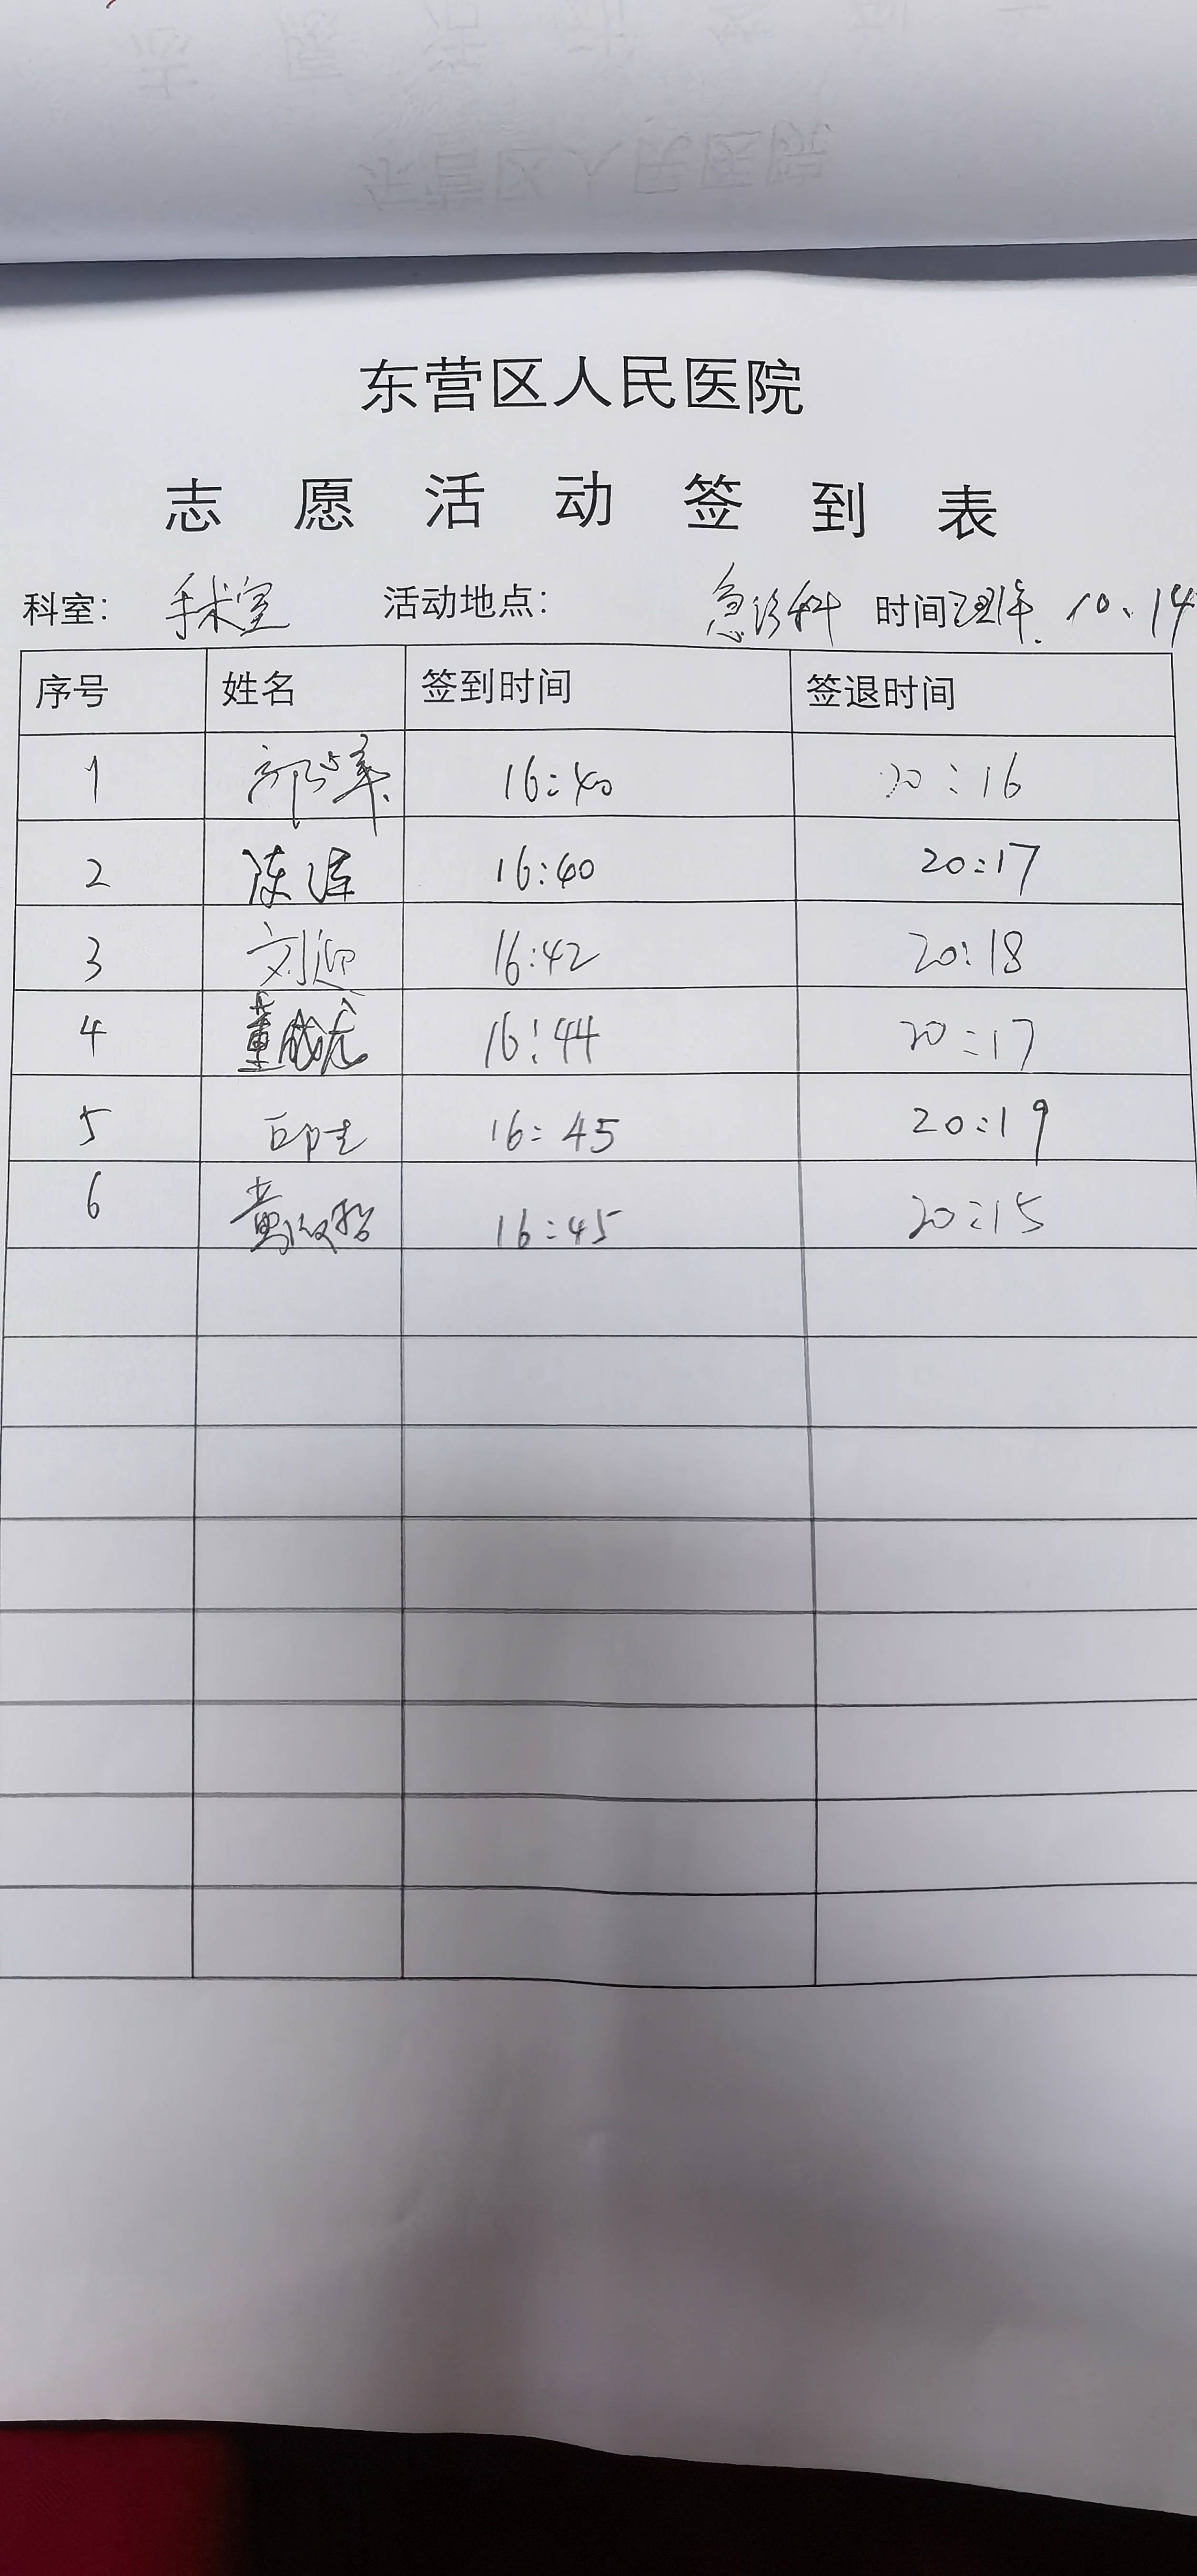 东营区人民医院
志愿活动签到表
科室: 手术室 活动地点: 急诊科 时间 10.14
序号 姓名 签到时间 签退时间
1 16:40 20:16
2 陈 16:40 20:17
3 刘迎 16:42 20:18
4 董 16:44 20:17
5 16:45 20:19
6 黄 16:45 20:15